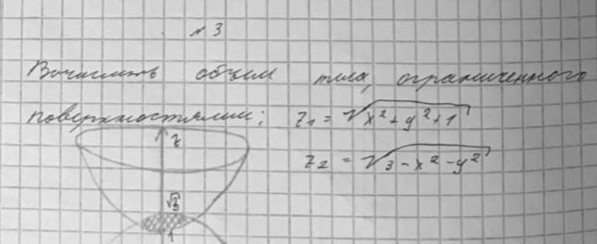 № 3
Вычислить объем тела, ограниченного
поверхностями: z₁ = √(x² + y² + 1)
z₂ = √(3 - x² - y²)
z
√3
1